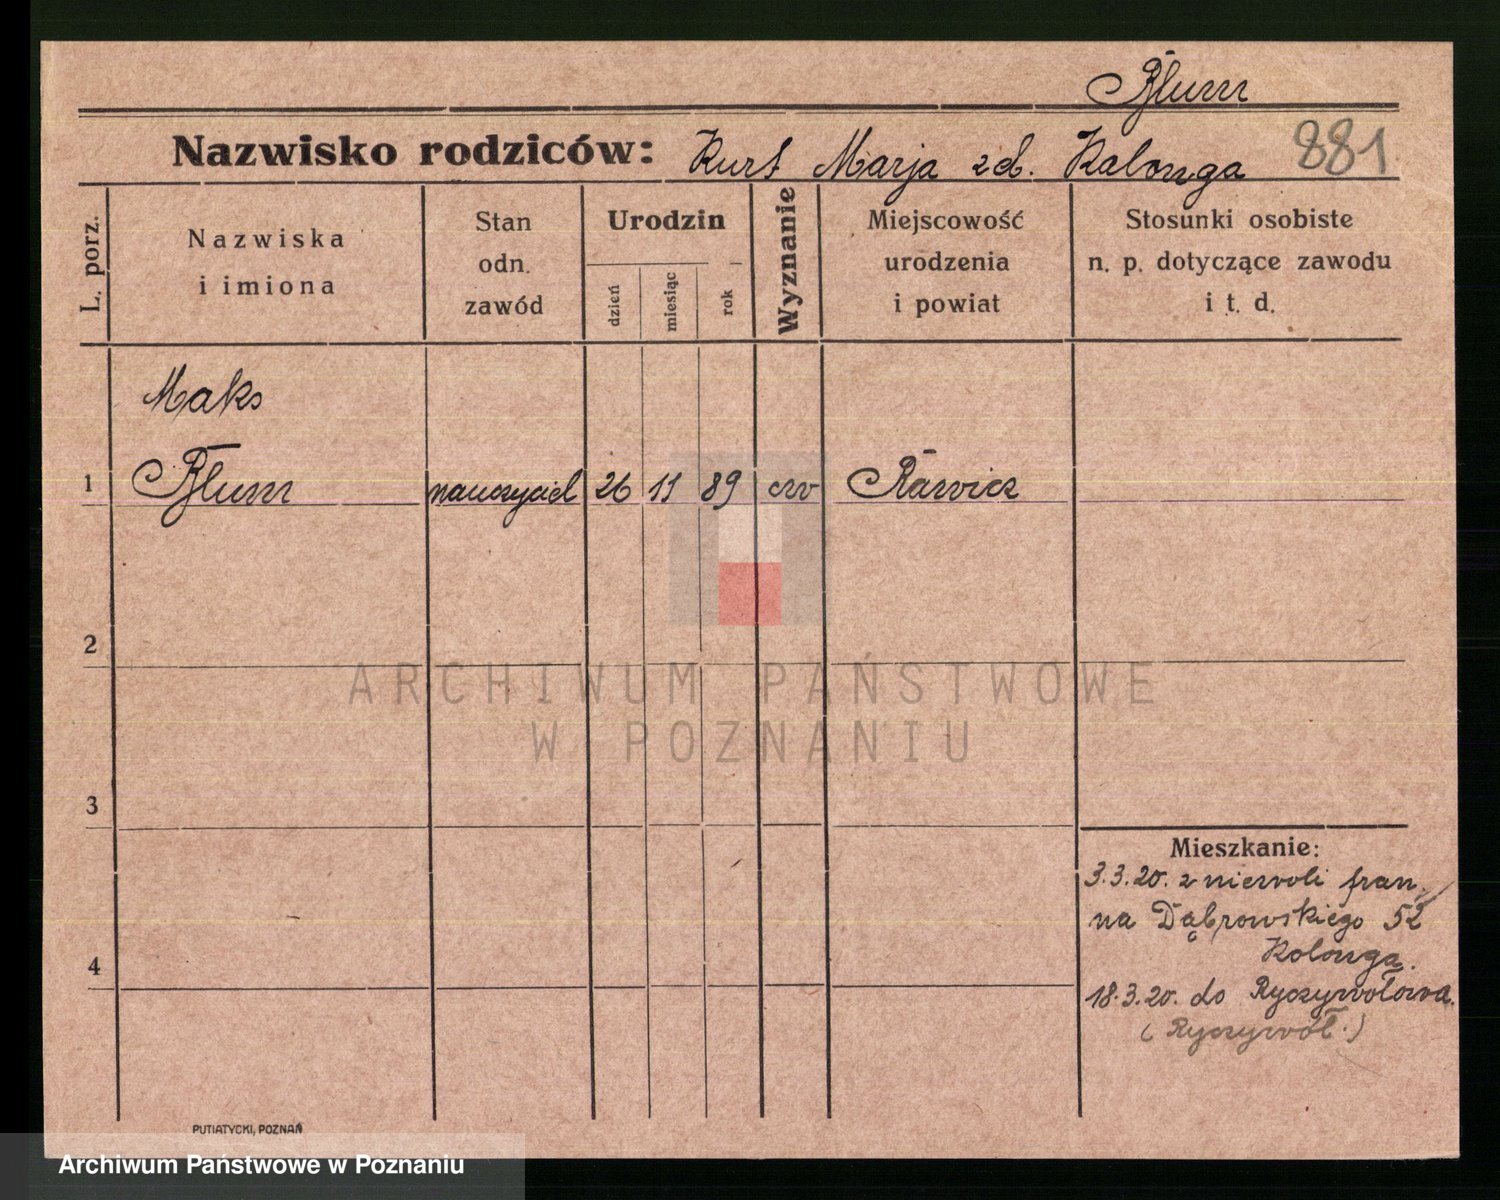 Blum
Nazwisko rodziców: Kurt Marja zd. Kalonga 881
L. porz.
Nazwiska
i imiona
Stan
odn.
zawód
Urodzin
dzień
miesiąc
rok
Wyznanie
Miejscowość
urodzenia
i powiat
Stosunki osobiste
n. p. dotyczące zawodu
i t. d.
Maks
1 Blum nauczyciel 26 11 89 ew Rawicz
2
ARCHIWUM PAŃSTWOWE
W POZNANIU
3
Mieszkanie:
3.3.20. z niewoli fran.
na Dąbrowskiego 52
4 Kolonga.
18.3.20. do Ryczywołowa.
(Ryczywół.)
PUTIATYCKI, POZNAŃ
Archiwum Państwowe w Poznaniu